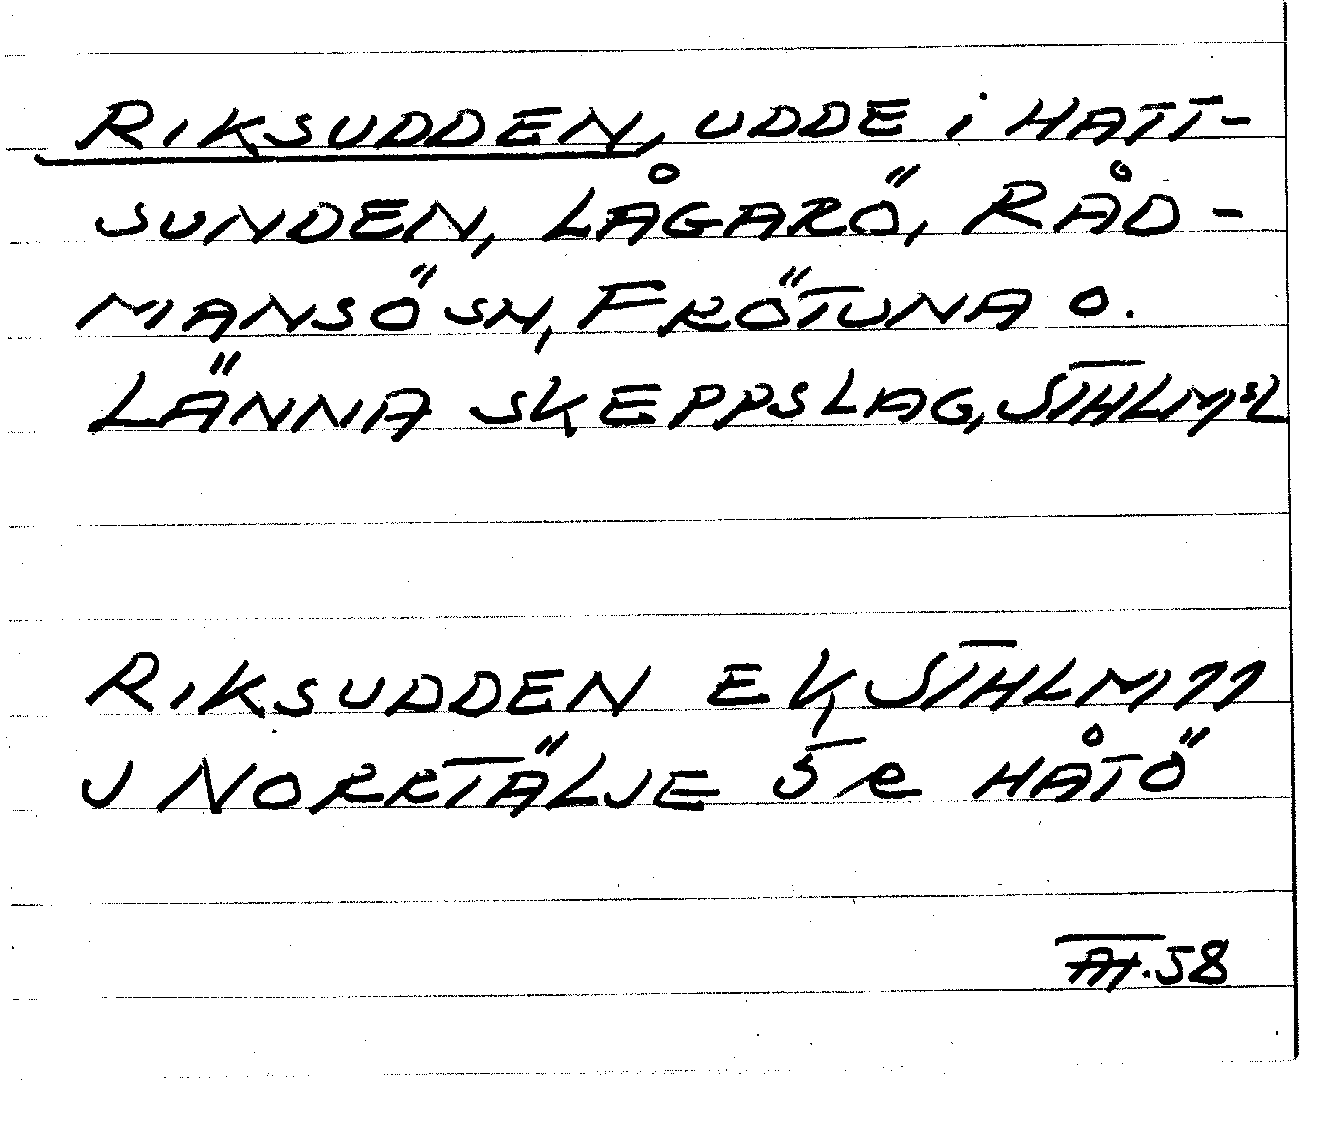 RIKSUDDEN, UDDE i HATT-
SUNDEN, LÅGARÖ, RÅD-
MANSÖ SN, FRÖTUNA O.
LÄNNA SKEPPSLAG, STHLMSL
RIKSUDDEN EK, STHLM 77
J NORRTÄLJE 5 R HÅTÖ
58